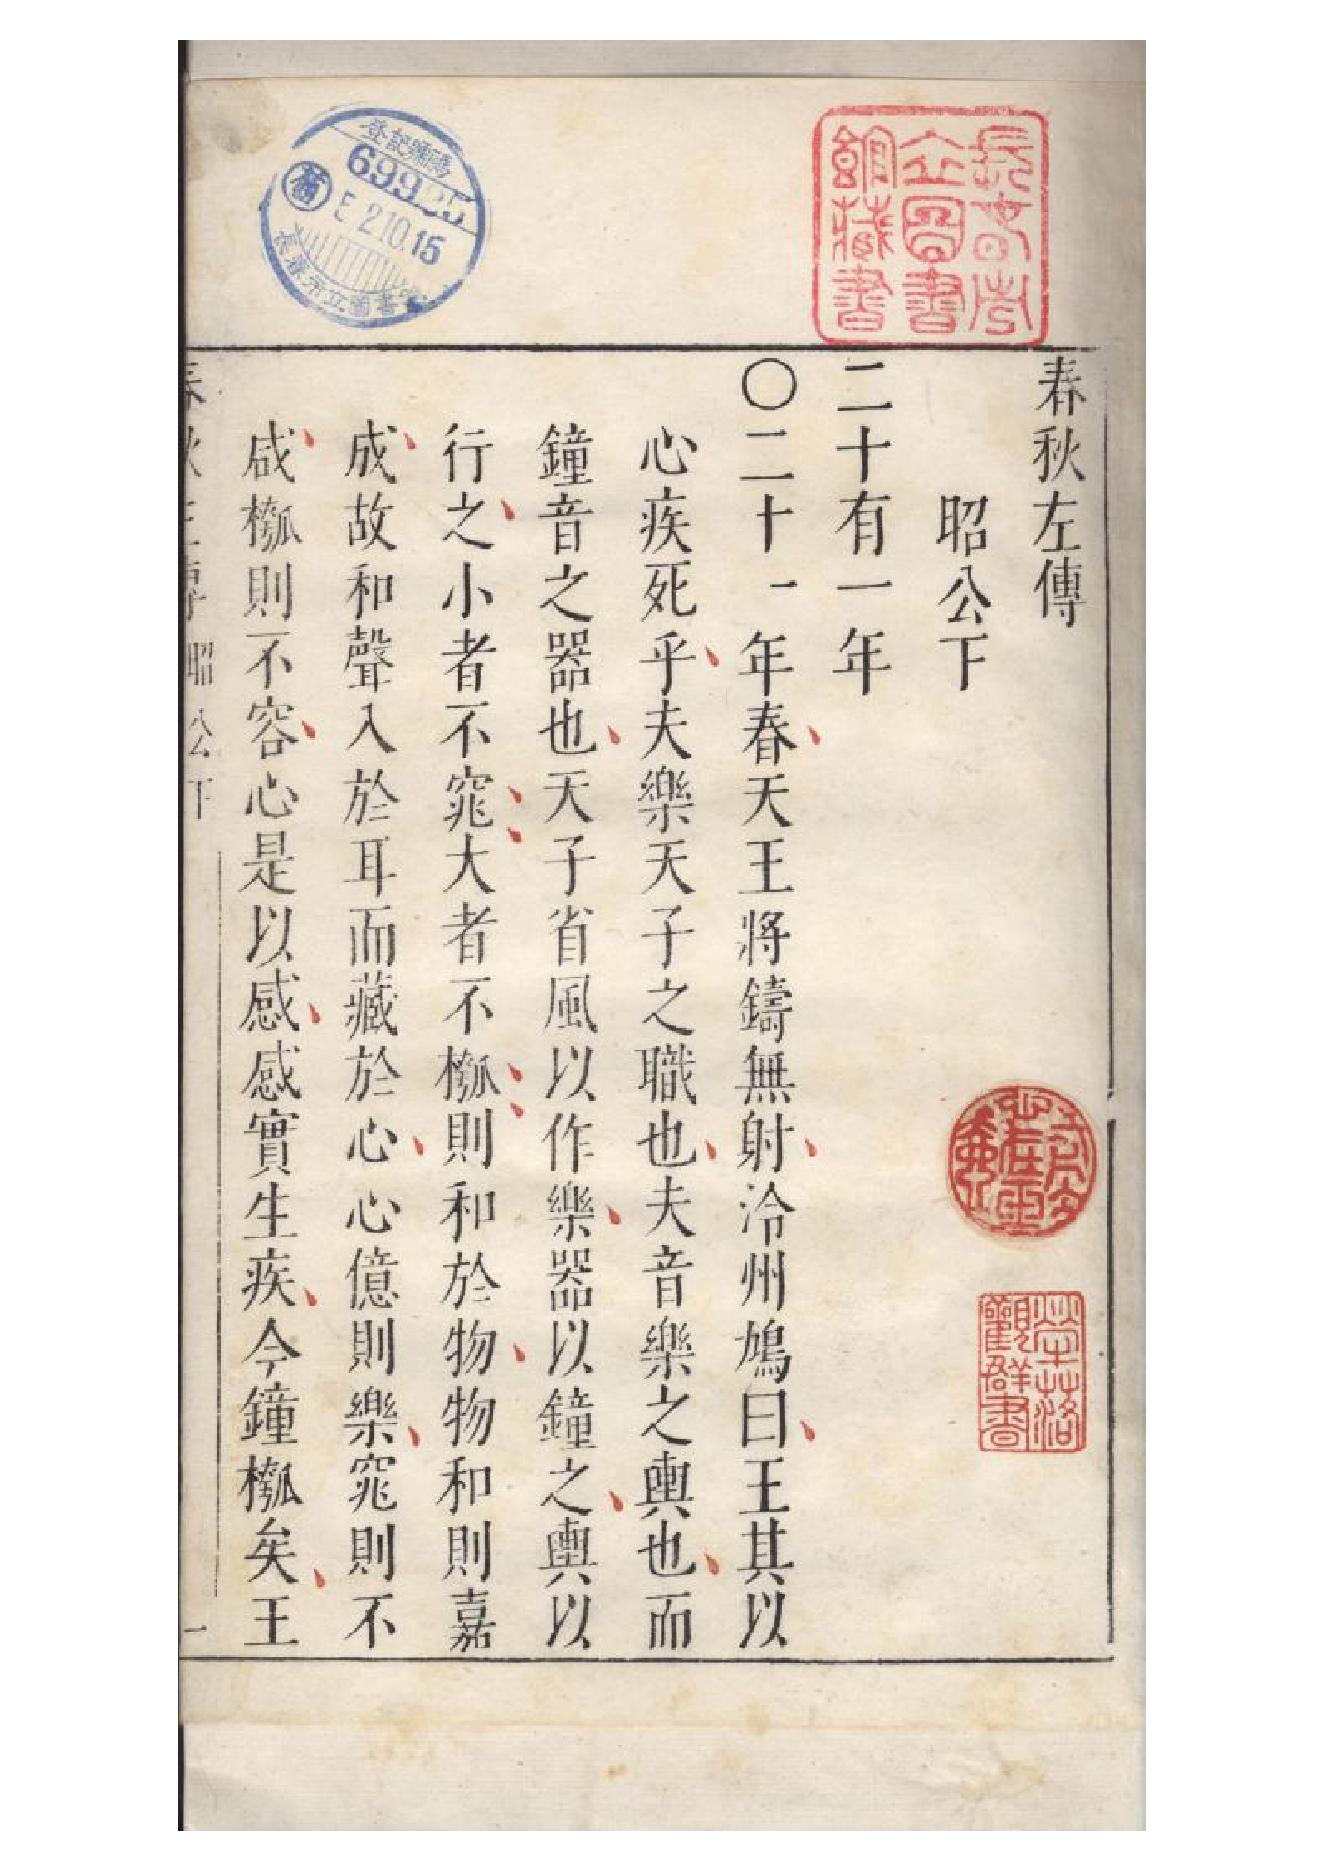 春秋左傳
昭公下
二十有一年
〇二十一年春天王將鑄無射泠州鳩曰王其以
心疾死乎夫樂天子之職也夫音樂之輿也而
鐘音之器也天子省風以作樂器以鐘之輿以
行之小者不窕大者不槬則和於物物和則嘉
成故和聲入於耳而藏於心心億則樂窕則不
咸槬則不容心是以感感實生疾今鐘槬矣王
春秋左傳 昭公下 一
長春市立圖書館藏書
登記號碼
69925
2.10.15
長春市立圖書
犖犖觀群書